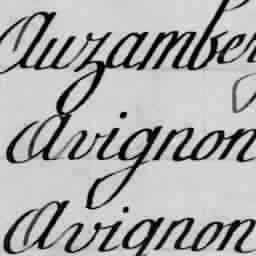 Auzamber
Avignon
Avignon